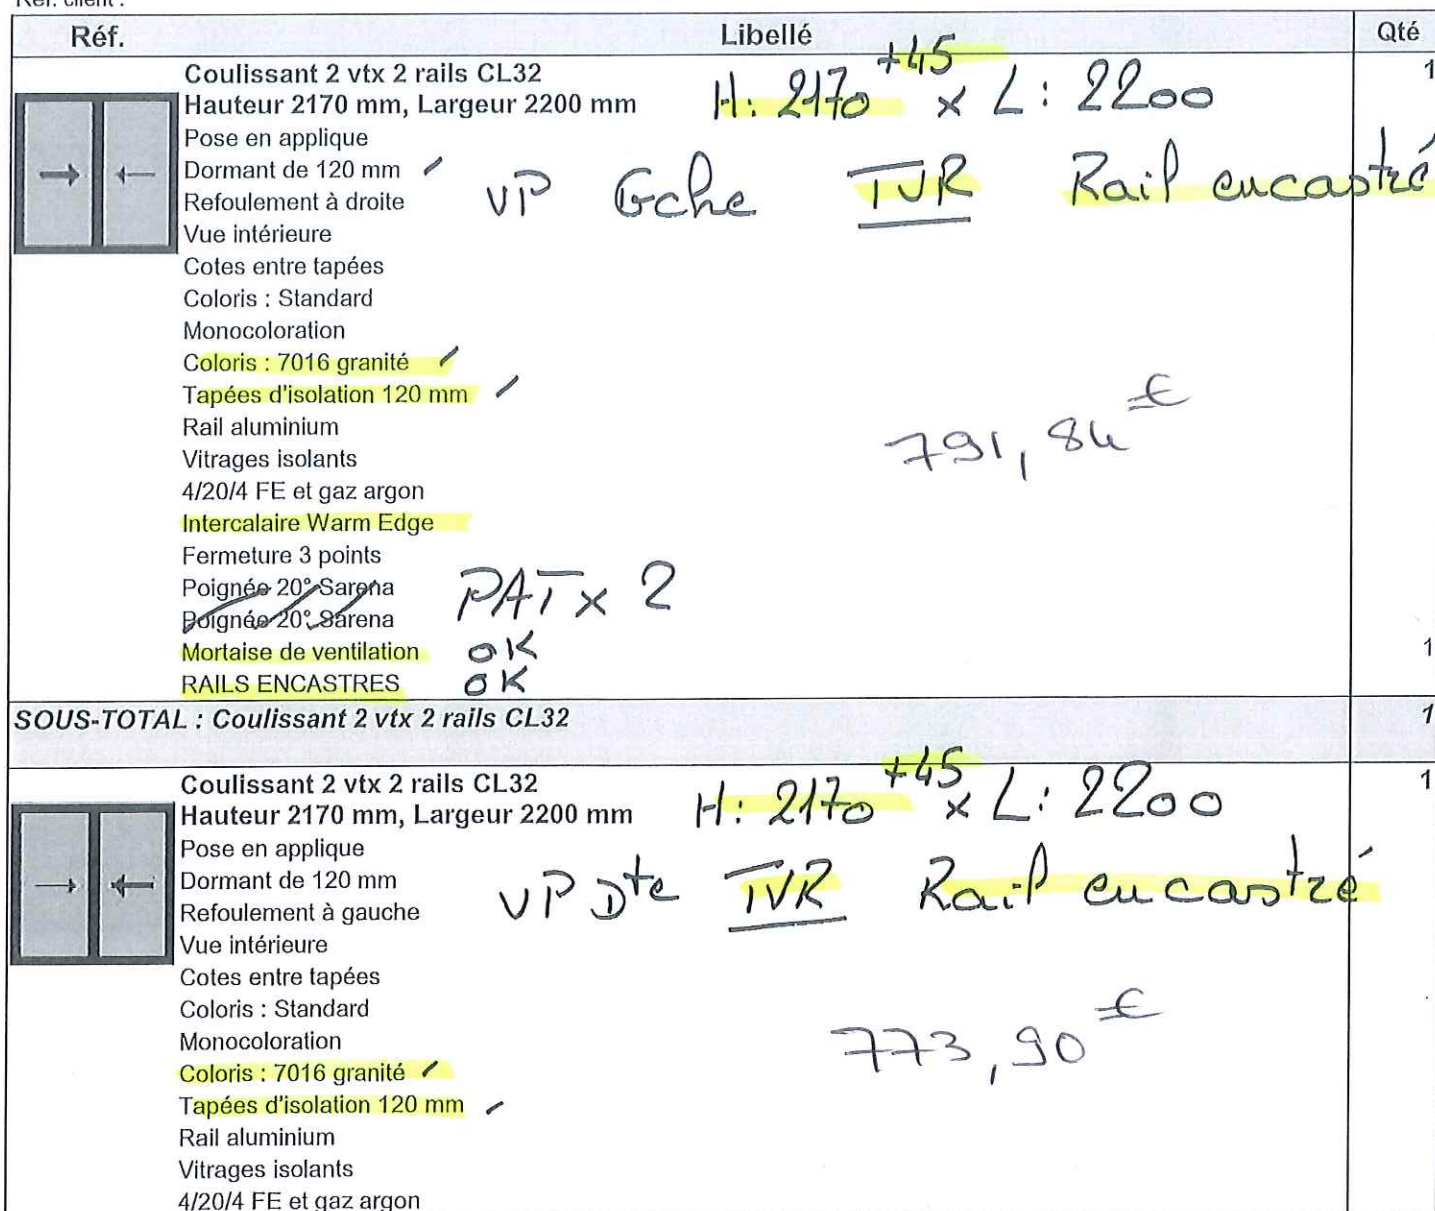 Réf. client :
Réf. Libellé Qté
Coulissant 2 vtx 2 rails CL32 1
Hauteur 2170 mm, Largeur 2200 mm H: 2170 +45 x L: 2200
Pose en applique
Dormant de 120 mm
Refoulement à droite VP Gche TVR Rail encastré
Vue intérieure
Cotes entre tapées
Coloris : Standard
Monocoloration
Coloris : 7016 granité
Tapées d'isolation 120 mm
Rail aluminium 791,84 €
Vitrages isolants
4/20/4 FE et gaz argon
Intercalaire Warm Edge
Fermeture 3 points
Poignée 20° Sarena PAT x 2
Poignée 20° Sarena
Mortaise de ventilation OK 1
RAILS ENCASTRES OK
SOUS-TOTAL : Coulissant 2 vtx 2 rails CL32 1
Coulissant 2 vtx 2 rails CL32 1
Hauteur 2170 mm, Largeur 2200 mm H: 2170 +45 x L: 2200
Pose en applique
Dormant de 120 mm VP Dte TVR Rail encastré
Refoulement à gauche
Vue intérieure
Cotes entre tapées
Coloris : Standard
Monocoloration 773,90 €
Coloris : 7016 granité
Tapées d'isolation 120 mm
Rail aluminium
Vitrages isolants
4/20/4 FE et gaz argon